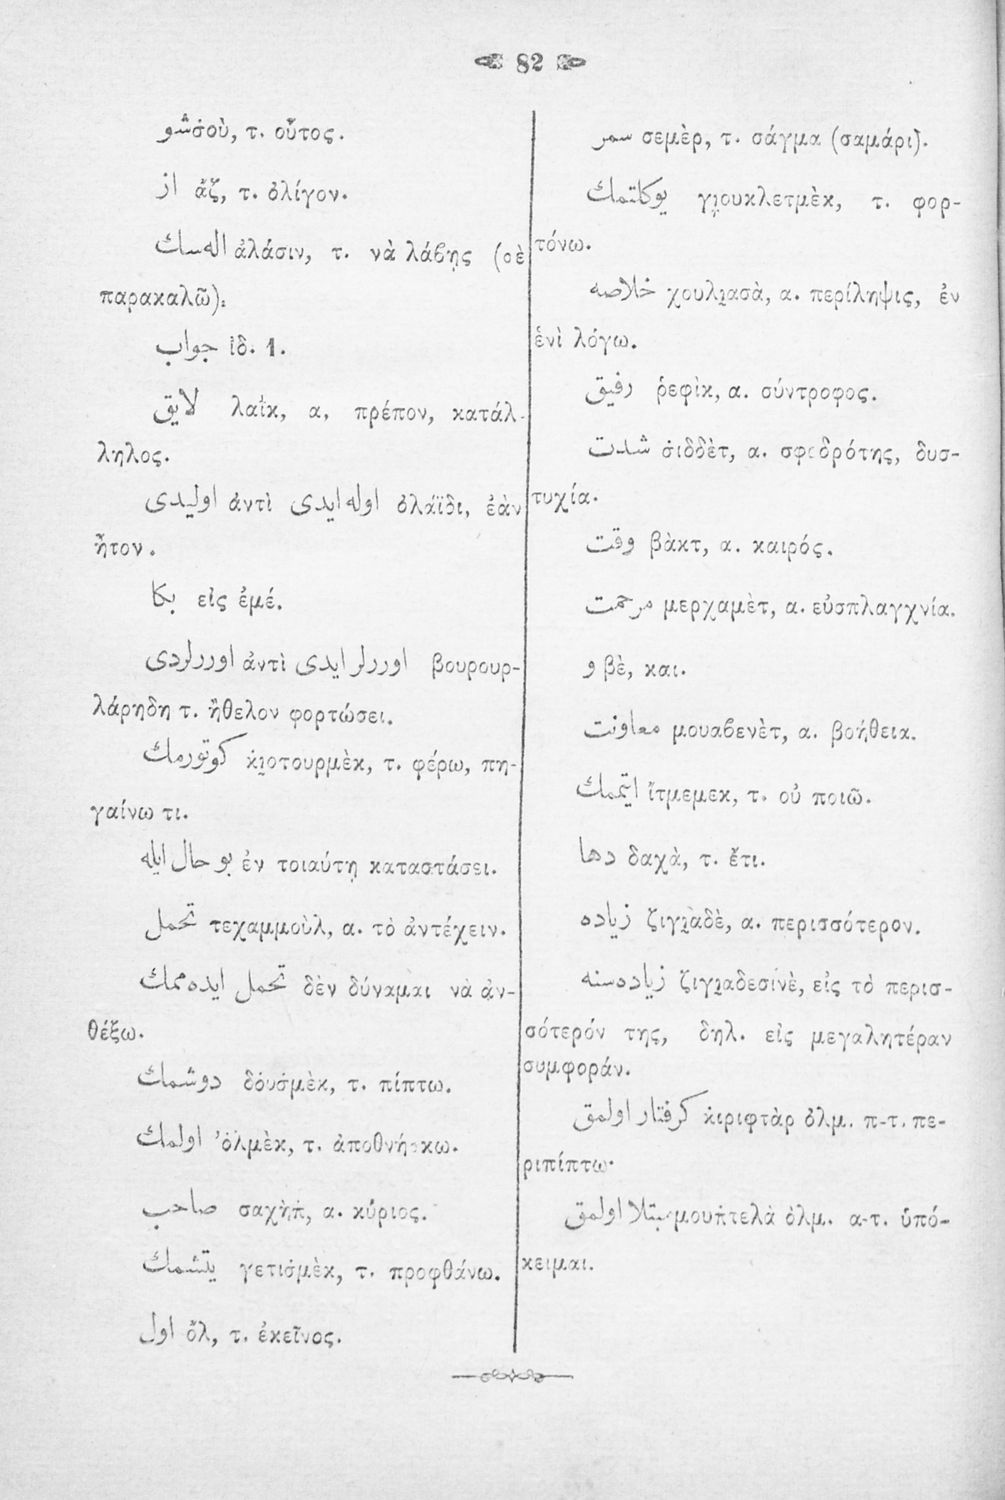 82
شو σ̇οὺ, τ. οὗτος.
از ἄζ, τ. ὀλίγον.
اله‌سك ἀλάσιν, τ. νὰ λάβῃς (σὲ
παρακαλῶ).
جواب ἰδ. 1.
لايق λαΐκ, α, πρέπον, κατάλ-
ληλος.
اوليدى ἀντὶ اوله ايدى ὀλάϊδι, ἐὰν
ἦτον.
بكا εἰς ἐμέ.
اوررلردى ἀντὶ اوررلر ايدى βουρουρ-
λάρηδη τ. ἤθελον φορτώσει.
كوتورمك κι̯οτουρμὲκ, τ. φέρω, πη-
γαίνω τι.
بو حال ايله ἐν τοιαύτῃ καταστάσει.
تحمل τεχαμμοὺλ, α. τὸ ἀντέχειν.
تحمل ايده‌ممك δὲν δύναμαι νὰ ἀν-
θέξω.
دوشمك δὀυσ̇μὲκ, τ. πίπτω.
اولمك ὀλμὲκ, τ. ἀποθνήσκω.
صاحب σαχὴπ̇, α. κύριος.
يتشمك γετισ̇μὲκ, τ. προφθάνω.
اول ὂλ, τ. ἐκεῖνος.
سمر σεμὲρ, τ. σάγμα (σαμάρι).
يوكلتمك γι̯ουκλετμὲκ, τ. φορ-
τόνω.
خلاصه χουλι̯ασὰ, α. περίληψις, ἐν
ἑνὶ λόγω.
رفيق ῥεφὶκ, α. σύντροφος.
شدت σ̇ιδδὲτ, α. σφοδρότης, δυσ-
τυχία.
وقت βὰκτ, α. καιρός.
مرحمت μερχαμὲτ, α. εὐσπλαγχνία.
و βὲ, και.
معاونت μουαβενὲτ, α. βοήθεια.
ايتممك ἴτμεμεκ, τ. οὐ ποιῶ.
دها δαχὰ, τ. ἔτι.
زياده ζιγι̯ὰδὲ, α. περισσότερον.
زياده‌سنه ζιγι̯αδεσίνὲ, εἰς τὸ περισ-
σότερόν της, δηλ. εἰς μεγαλητέραν
συμφοράν.
كرفتار اولمق κ̇ιριφτὰρ ὀλμ. π-τ. πε-
ριπίπτω·
مبتلا اولمق μουπ̇τελὰ ὀλμ. α-τ. ὑπό-
κειμαι.